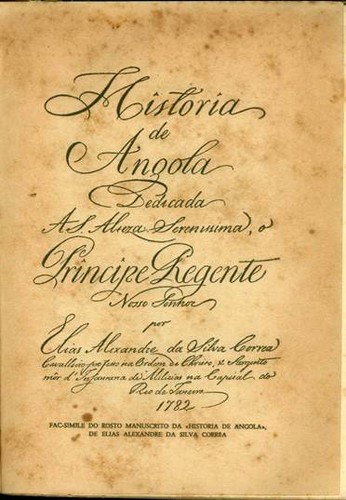 Historia
de
Angola
Dedicada
A S. Alteza Serenissima, o
Principe Regente
Nosso Senhor
por
Elias Alexandre da Silva Correa
Cavalleiro professo na Ordem de Christo, e Sargento
mór d'Infanteria de Milicias na Capital do
Rio de Janeiro
1782
FAC-SIMILE DO ROSTO MANUSCRITO DA «HISTORIA DE ANGOLA»,
DE ELIAS ALEXANDRE DA SILVA CORREA